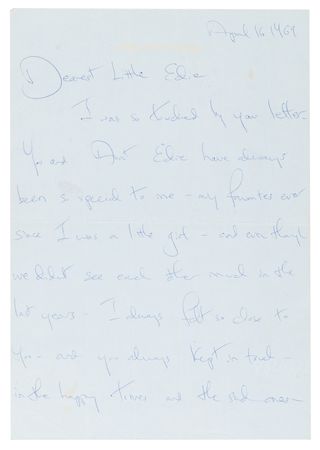 April 16 1969
Dearest Little Edie
I was so touched by your letter -
You and Aunt Edie have always
been so special to me - my favorites ever
since I was a little girl - and even though
we didn't see each other much in the
last years - I always felt so close to
you - and you always kept in touch -
in the happy times and the sad ones -